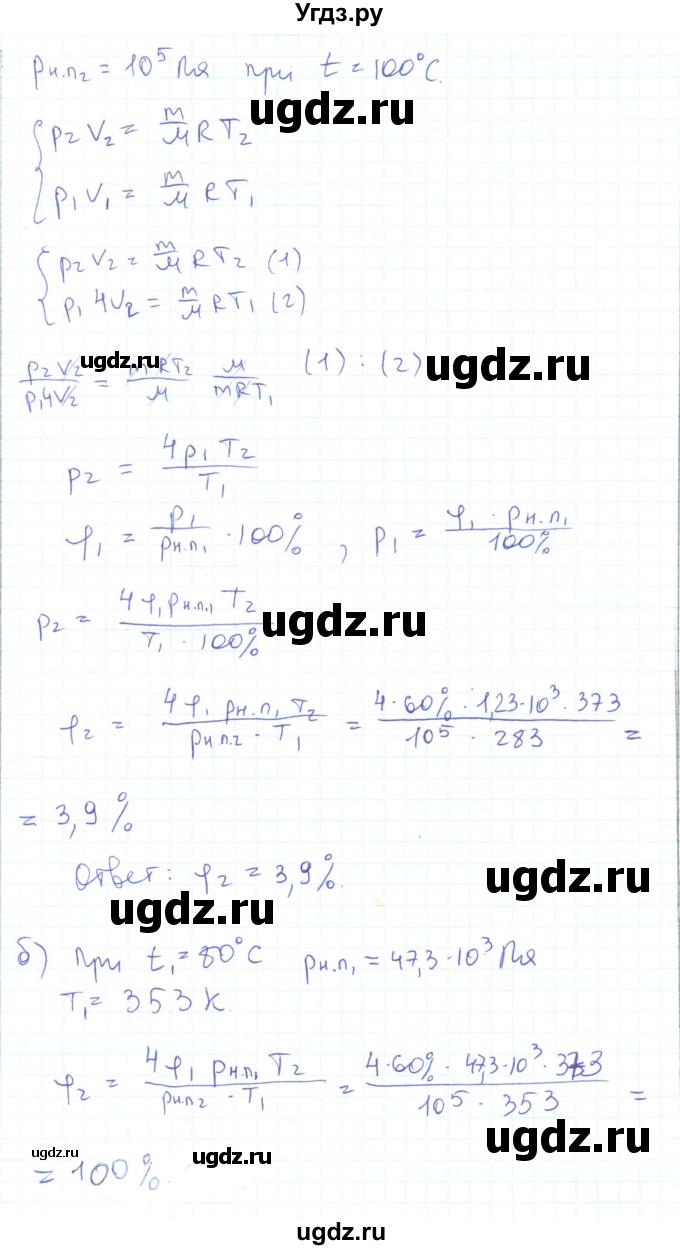 Угдз.ру
pн.п₂ = 10⁵ Па при t = 100°C.
ugdz.ru
{ p₂V₂ = m/M RT₂
p₁V₁ = m/M RT₁
{ p₂V₂ = m/M RT₂ (1)
p₁4V₂ = m/M RT₁ (2)
ugdz.ru
ugdz.ru
p₂V₂/p₁4V₂ = mRT₂/M M/mRT₁ (1) : (2)
p₂ = 4p₁T₂/T₁
φ₁ = p₁/pн.п₁ · 100%, p₁ = φ₁ · pн.п₁/100%
p₂ = 4φ₁pн.п₁T₂/T₁ · 100%
ugdz.ru
φ₂ = 4φ₁ pн.п₁ T₂/pн.п₂ · T₁ = 4·60% · 1,23·10³ · 373/10⁵ · 283 =
= 3,9%
Ответ: φ₂ = 3,9%.
ugdz.ru
ugdz.ru
б) при t₁ = 80°C pн.п₁ = 47,3·10³ Па
T₁ = 353 К.
φ₂ = 4φ₁ pн.п₁ T₂/pн.п₂ · T₁ = 4·60% · 47,3·10³ · 373/10⁵ · 353 =
ugdz.ru
ugdz.ru
ugdz.ru
= 100%.
ugdz.ru